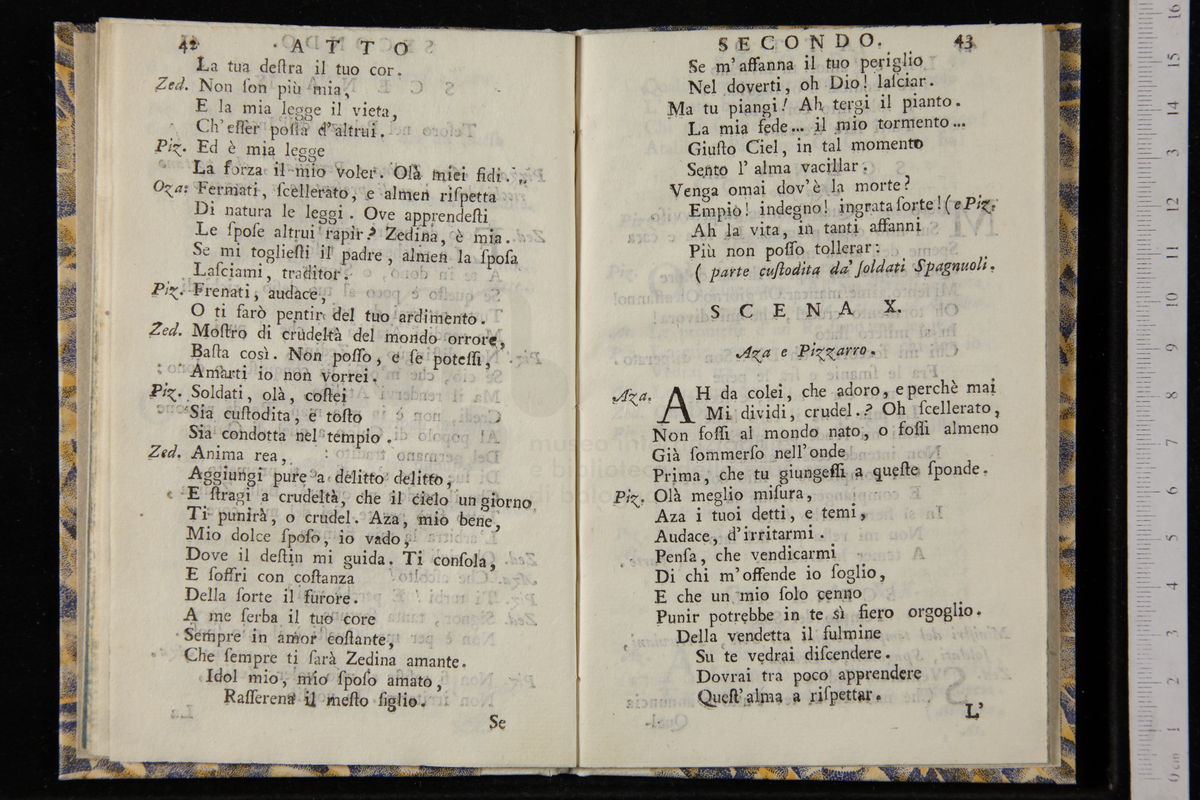 42 ATTO
La tua deſtra il tuo cor.
Zed. Non ſon più mia,
E la mia legge il vieta,
Ch'eſſer poſſa d'altrui.
Piz. Ed è mia legge
La forza il mio voler. Olà miei fidi.
Oza: Fermati, ſcellerato, e almen riſpetta
Di natura le leggi. Ove apprendeſti
Le ſpoſe altrui rapir? Zedina, è mia.
Se mi toglieſti il padre, almen la ſpoſa
Laſciami, traditor.
Piz. Frenati, audace,
O ti farò pentir del tuo ardimento.
Zed. Moſtro di crudeltà del mondo orrore,
Baſta così. Non poſſo, e ſe poteſſi,
Amarti io non vorrei.
Piz. Soldati, olà, coſtei
Sia cuſtodita, e toſto
Sia condotta nel tempio.
Zed. Anima rea,
Aggiungi pure a delitto delitto,
E ſtragi a crudeltà, che il cielo un giorno
Ti punirà, o crudel. Aza, mio bene,
Mio dolce ſpoſo, io vado,
Dove il deſtin mi guida. Ti conſola,
E ſoffri con coſtanza
Della ſorte il furore.
A me ſerba il tuo core
Sempre in amor coſtante,
Che ſempre ti ſarà Zedina amante.
Idol mio, mio ſpoſo amato,
Raſſerena il meſto ſiglio.
Se
SECONDO. 43
Se m'affanna il tuo periglio
Nel doverti, oh Dio! laſciar.
Ma tu piangi! Ah tergi il pianto.
La mia fede... il mio tormento...
Giuſto Ciel, in tal momento
Sento l'alma vacillar.
Venga omai dov'è la morte?
Empio! indegno! ingrata ſorte! (e Piz.
Ah la vita, in tanti affanni
Più non poſſo tollerar:
( parte cuſtodita da' ſoldati Spagnuoli.
SCENA X.
Aza e Pizzarro.
Aza. AH da colei, che adoro, e perchè mai
Mi dividi, crudel.? Oh ſcellerato,
Non foſſi al mondo nato, o foſſi almeno
Già ſommerſo nell'onde
Prima, che tu giungeſſi a queſte ſponde.
Piz. Olà meglio miſura,
Aza i tuoi detti, e temi,
Audace, d'irritarmi.
Penſa, che vendicarmi
Di chi m'offende io ſoglio,
E che un mio ſolo cenno
Punir potrebbe in te sì fiero orgoglio.
Della vendetta il fulmine
Su te vedrai diſcendere.
Dovrai tra poco apprendere
Queſt'alma a riſpettar.
L'